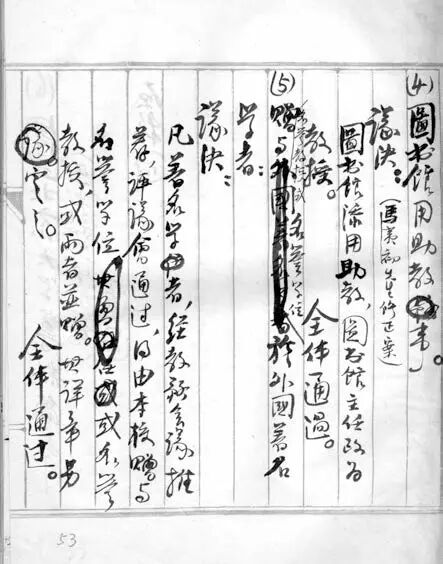 (4) 圖书館用助教事。
議決：（馬夷初先生修正案）
圖书館添用助教，圖书館主任改为
教授。 全体通過。
(5) 贈与名誉学位 於外國著名
学者：
議決：
凡著名学者，經教務会議推
荐，评議会通过，得由本校贈与
名誉学位，或名誉
教授，或兩者並贈。其详章另
議定之。
全体通过。
53